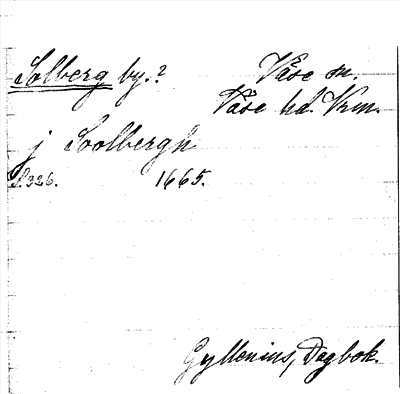 Solberg by.? Väse sn.
Väse hd. Vrm.
j Soolbergh
S. 326. 1665.
Gyllenius, Dagbok.